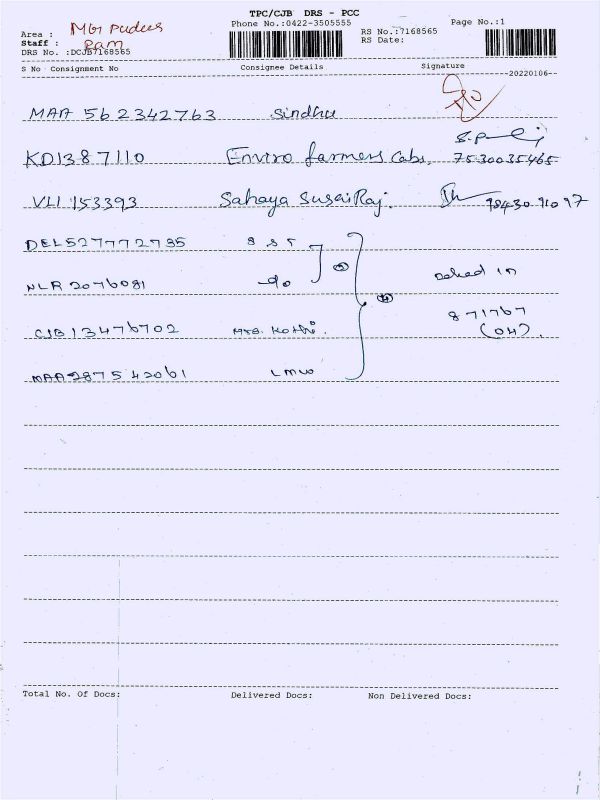 TPC/CJB DRS - PCC
Phone No.:0422-3505555
Page No.:1
Area :
Staff : Ram
DRS No. :DCJB7168565
RS No.:7168565
RS Date:
S No Consignment No Consignee Details Signature
20220106
MAA 562342763 Sindhu
KD1387110 Enviro farmers Labs. 7530035465
VLI 153393 Sahaya SusaiRaj. 98430 91097
DEL527772785
NLR 2076081 do
CJB13476702 Kothi.
871767
MAA287542061 LMW
(04).
Total No. Of Docs: Delivered Docs: Non Delivered Docs: